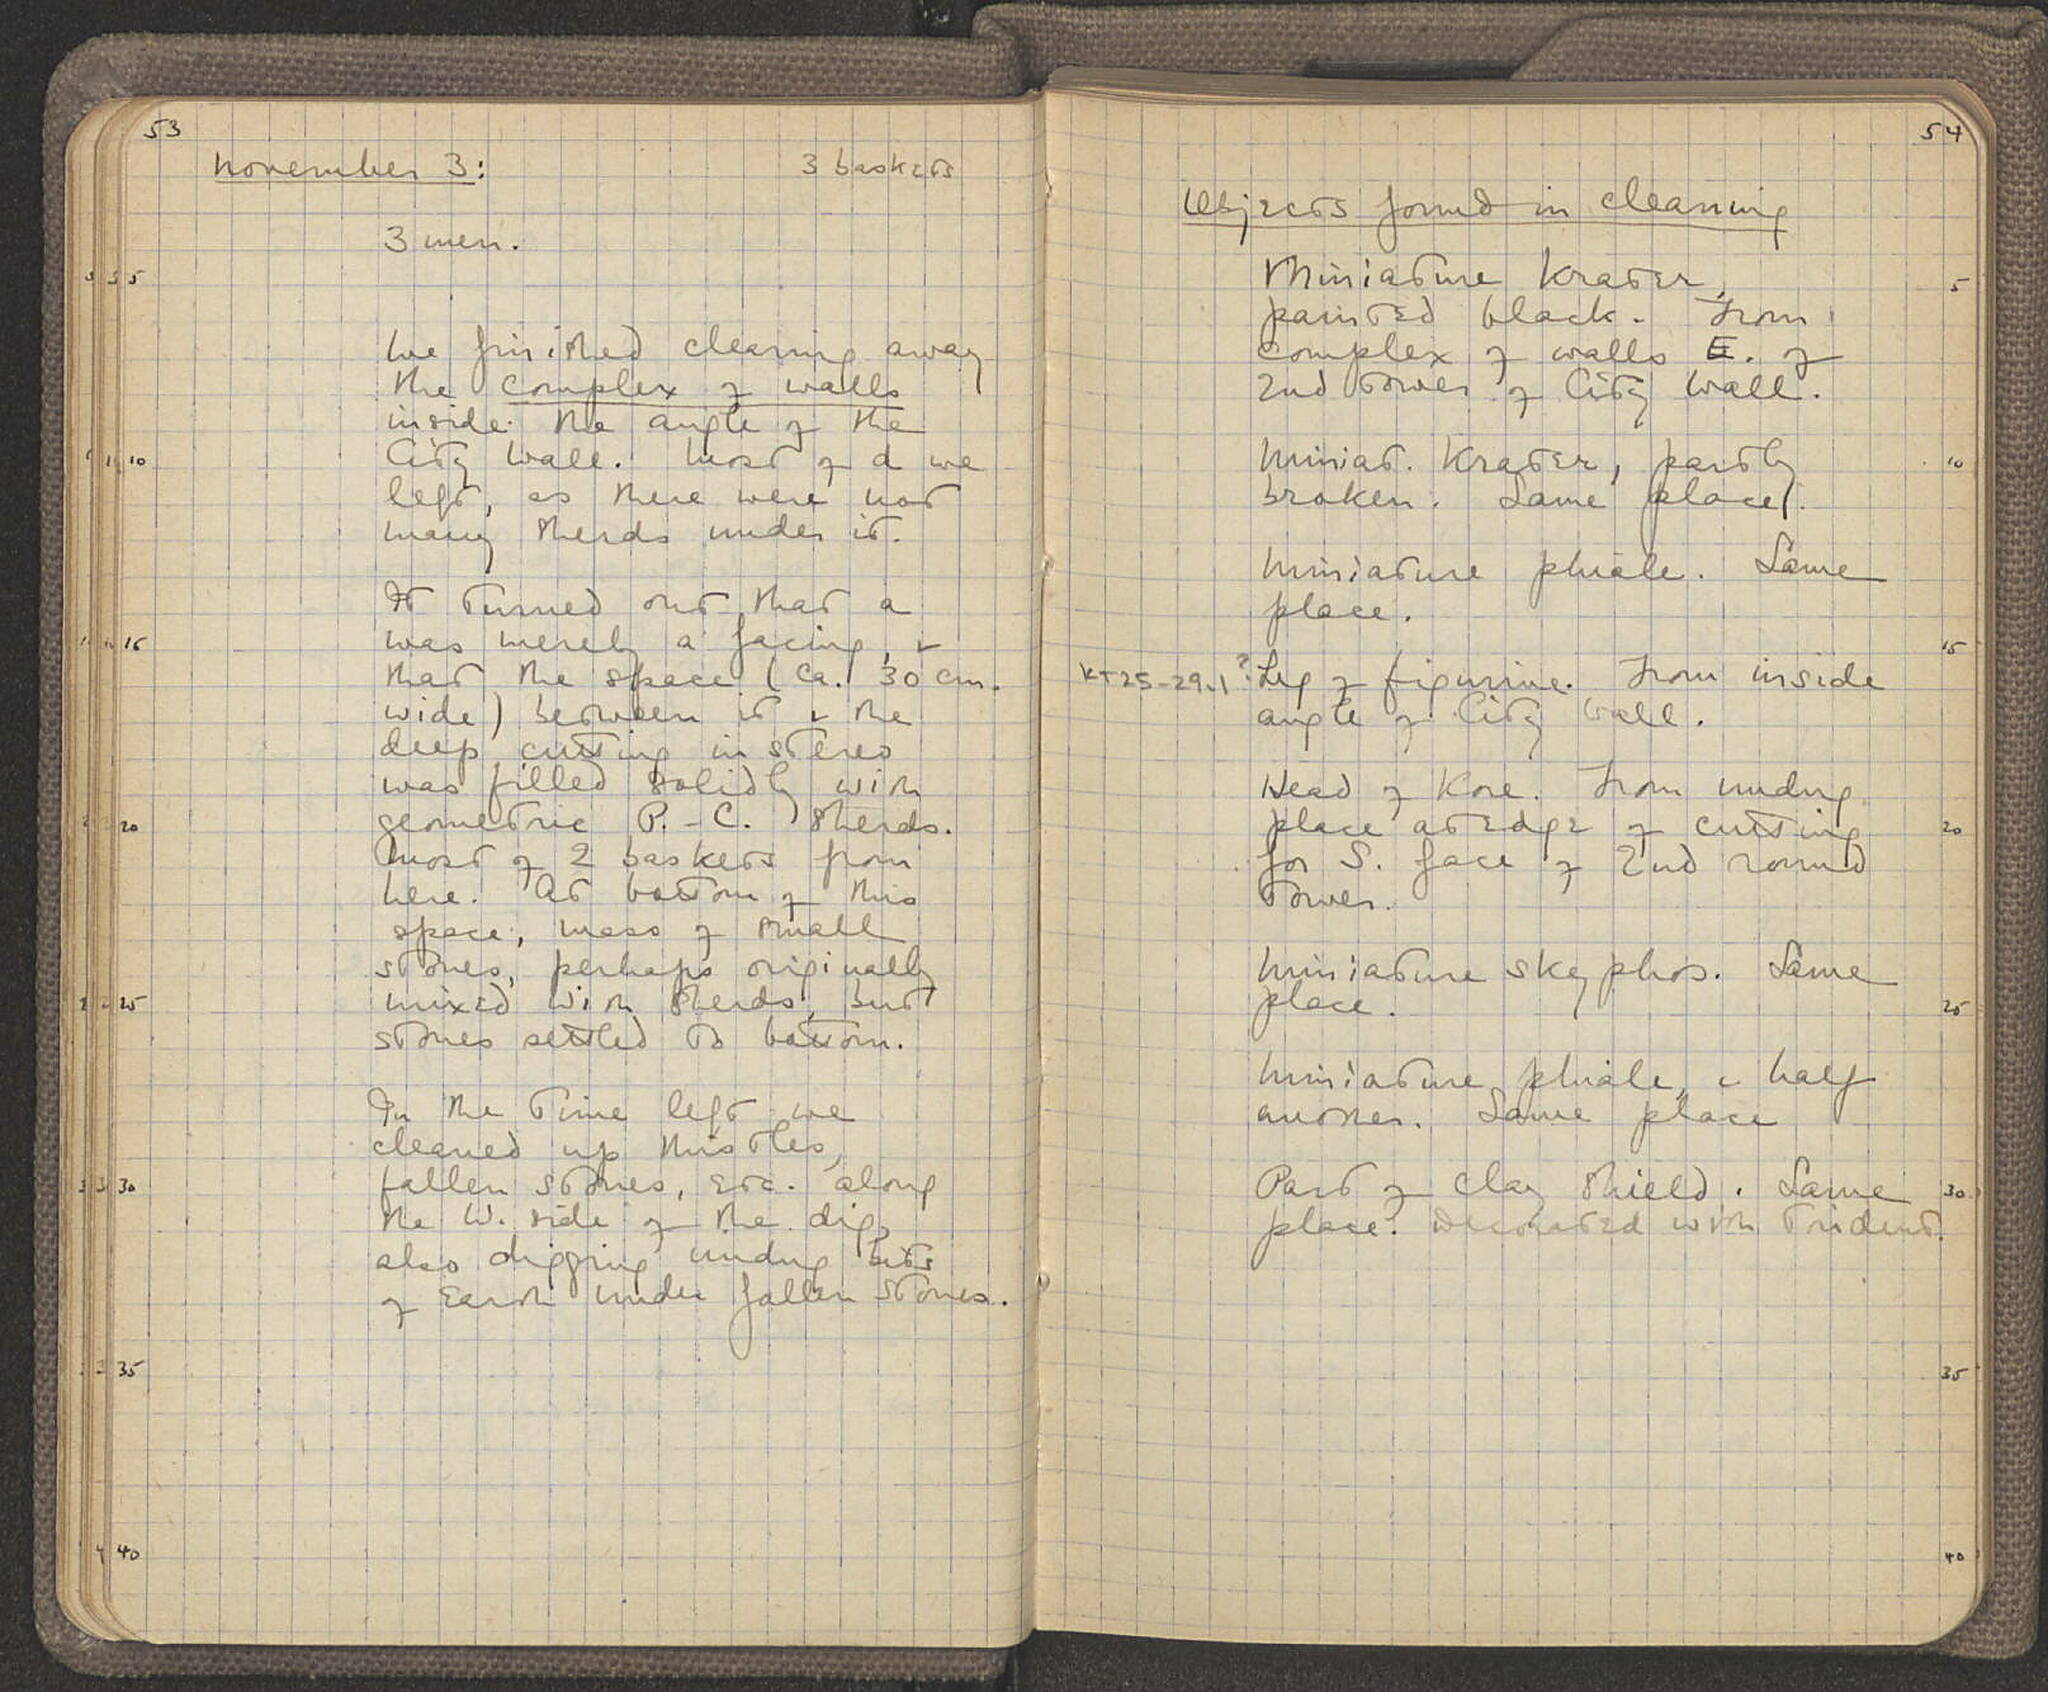 53
November 3:    3 baskets
3 men.
5
We finished clearing away
the complex of walls
inside the angle of the
City Wall. Most of d we
10
left, as there were not
many sherds under it.
It turned out that a
was merely a facing, &
15
that the space (ca. 30 cm.
wide) between it & the
deep cutting in stereo
was filled solidly with
geometric P.-C. sherds.
20
Most of 2 baskets from
here. At bottom of this
space, mass of small
stones, perhaps originally
mixed with sherds, but
25
stones settled to bottom.
In the time left we
cleaned up thistles,
fallen stones, etc. along
30
the W. side of the dig,
also digging undug bits
of earth under fallen stones.
35
40
54
Objects found in cleaning
Miniature Krater,
5
painted black. From
complex of walls E. of
2nd tower of City Wall.
Miniat. Krater, partly
10
broken. Same place.
Miniature phiale. Same
place.
15
KT25-29.1? Leg of figurine. From inside
angle of City Wall.
Head of Kore. From undug
place at edge of cutting
20
for S. face of 2nd round
tower.
Miniature skyphos. Same
place.
25
Miniature phiale, & half
another. Same place
Part of clay shield. Same
30
place. Decorated with trident.
35
40